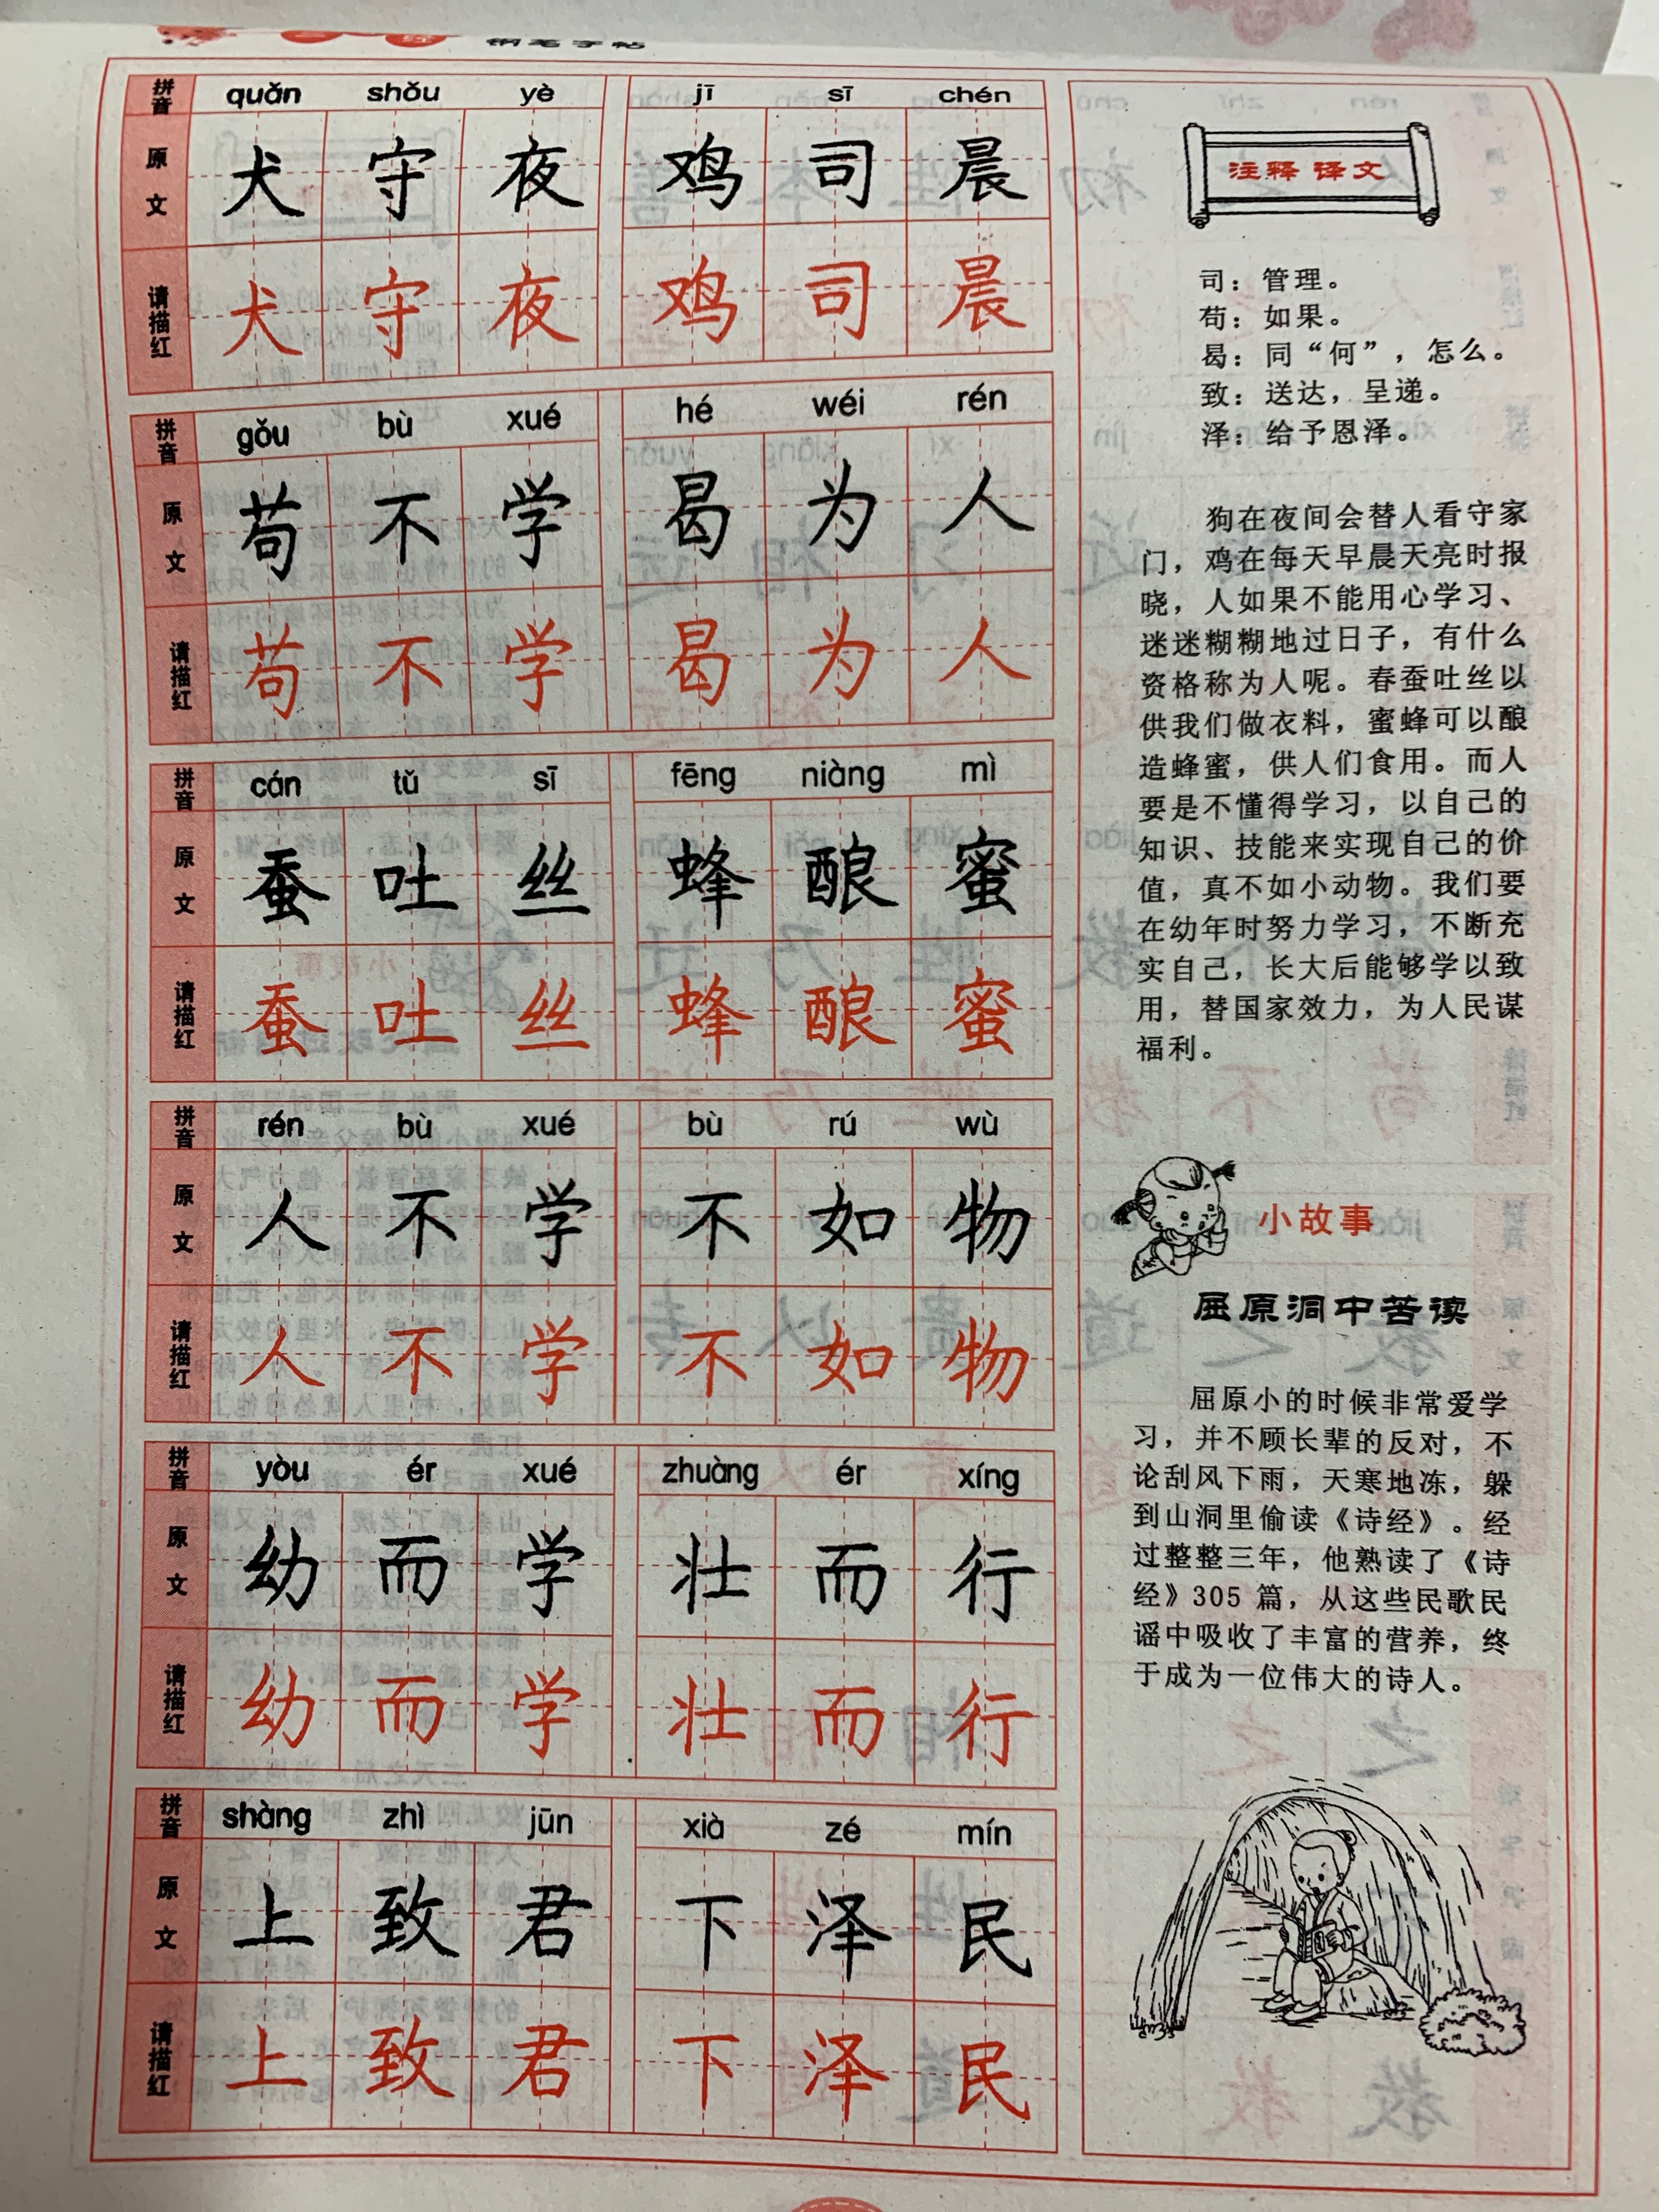 钢笔字帖
拼音 quǎn shǒu yè jī sī chén
原文 犬 守 夜 鸡 司 晨
请描红 犬 守 夜 鸡 司 晨
拼音 gǒu bù xué hé wéi rén
原文 苟 不 学 曷 为 人
请描红 苟 不 学 曷 为 人
拼音 cán tǔ sī fēng niàng mì
原文 蚕 吐 丝 蜂 酿 蜜
请描红 蚕 吐 丝 蜂 酿 蜜
拼音 rén bù xué bù rú wù
原文 人 不 学 不 如 物
请描红 人 不 学 不 如 物
拼音 yòu ér xué zhuàng ér xíng
原文 幼 而 学 壮 而 行
请描红 幼 而 学 壮 而 行
拼音 shàng zhì jūn xià zé mín
原文 上 致 君 下 泽 民
请描红 上 致 君 下 泽 民
注释 译文
司：管理。
苟：如果。
曷：同“何”，怎么。
致：送达，呈递。
泽：给予恩泽。
狗在夜间会替人看守家
门，鸡在每天早晨天亮时报
晓，人如果不能用心学习、
迷迷糊糊地过日子，有什么
资格称为人呢。春蚕吐丝以
供我们做衣料，蜜蜂可以酿
造蜂蜜，供人们食用。而人
要是不懂得学习，以自己的
知识、技能来实现自己的价
值，真不如小动物。我们要
在幼年时努力学习，不断充
实自己，长大后能够学以致
用，替国家效力，为人民谋
福利。
小故事
屈原洞中苦读
屈原小的时候非常爱学
习，并不顾长辈的反对，不
论刮风下雨，天寒地冻，躲
到山洞里偷读《诗经》。经
过整整三年，他熟读了《诗
经》305篇，从这些民歌民
谣中吸收了丰富的营养，终
于成为一位伟大的诗人。